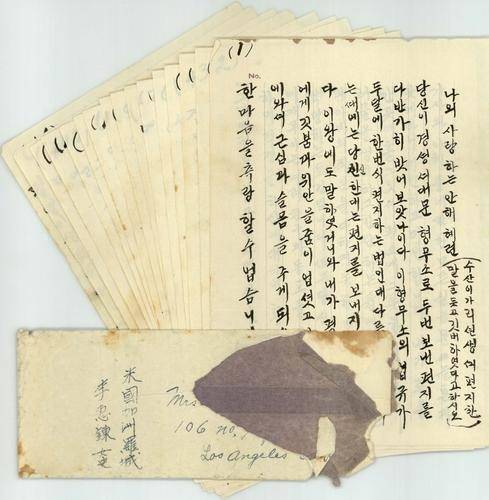 (1)
No.
나의 사랑하는 안해 혜련
(수산이가 리선생께 편지한
말을 듯고 깃버하엿다고 하시오)
당신이 경성 서대문 형무소로 두번 보낸 편지를
다 반가히 밧어 보앗나이다 이 형무소의 법규가
두달에 한번식 편지하는 법인대 다른
는 때에는 당신한대는 편지를 보내지
다 이왕에도 말하엿거니와 내가 평
에게 깃븜과 위안을 줌이 업셧고
에 와서 근심과 슬픔을 주게 되
한 마음을 측량할 수 업습니
米國加洲羅城
李惠鍊
Mrs
106 no.
Los Angeles